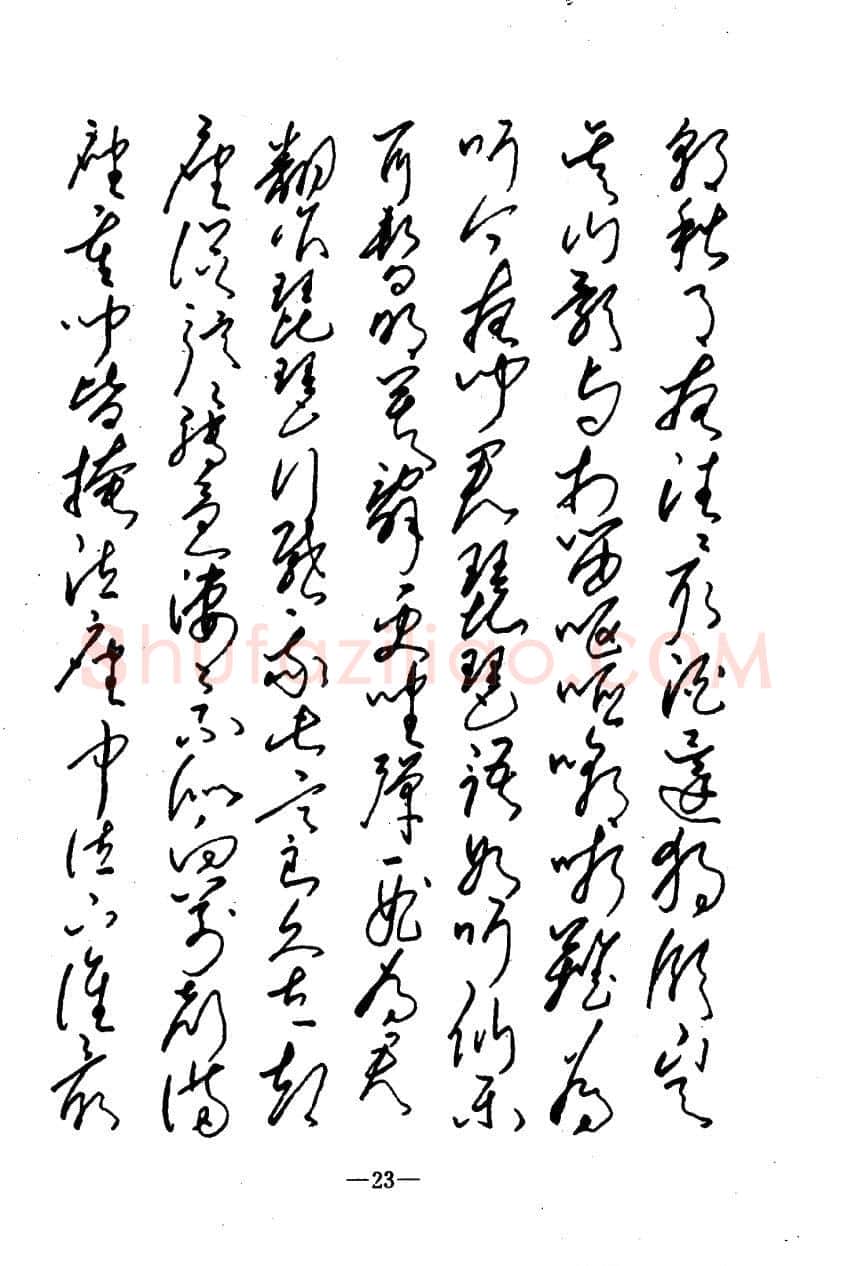 朝秋月夜往往取酒還独倾岂
无山歌与村笛呕哑嘲哳难为
听今夜闻君琵琶语如听仙乐
耳暂明莫辞更坐弹一曲为君
翻作琵琶行感我此言良久立却
座促弦弦转急凄凄不似向前声满
座重闻皆掩泣座中泣下谁最
—23—
Shufaziliao.COM